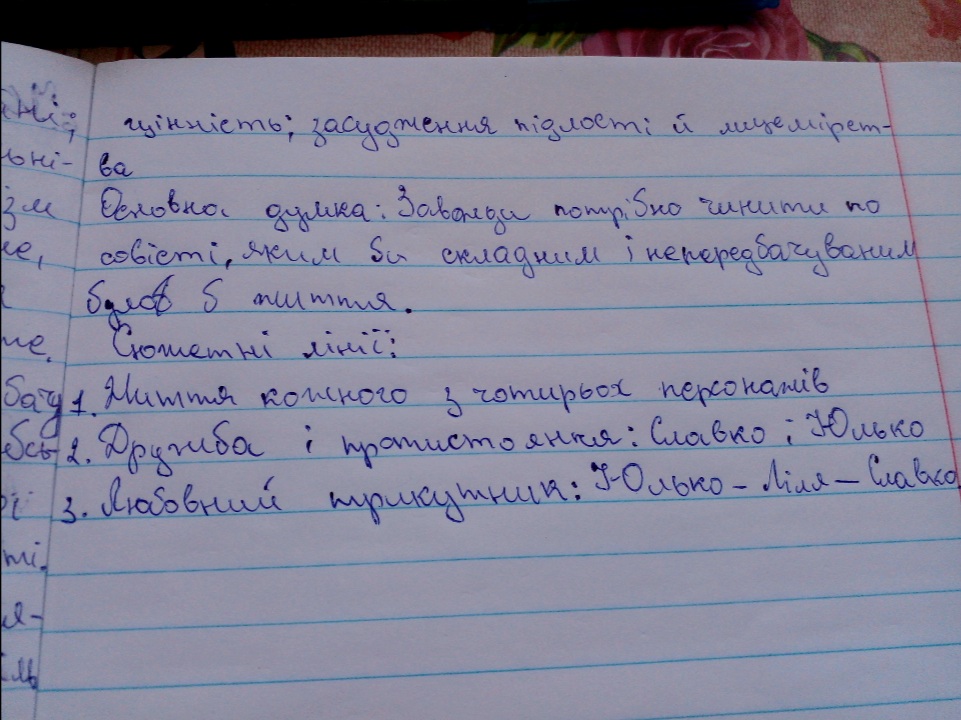 цінність; засудження підлості й лицемірст-
ва
Основна думка: Завжди потрібно чинити по
совісті, яким би складним і непередбачуваним
було б життя.
Сюжетні лінії:
1. Життя кожного з чотирьох персонажів
2. Дружба і протистояння: Славко і Юлько
3. Любовний трикутник: Юлько - Ліля - Славко